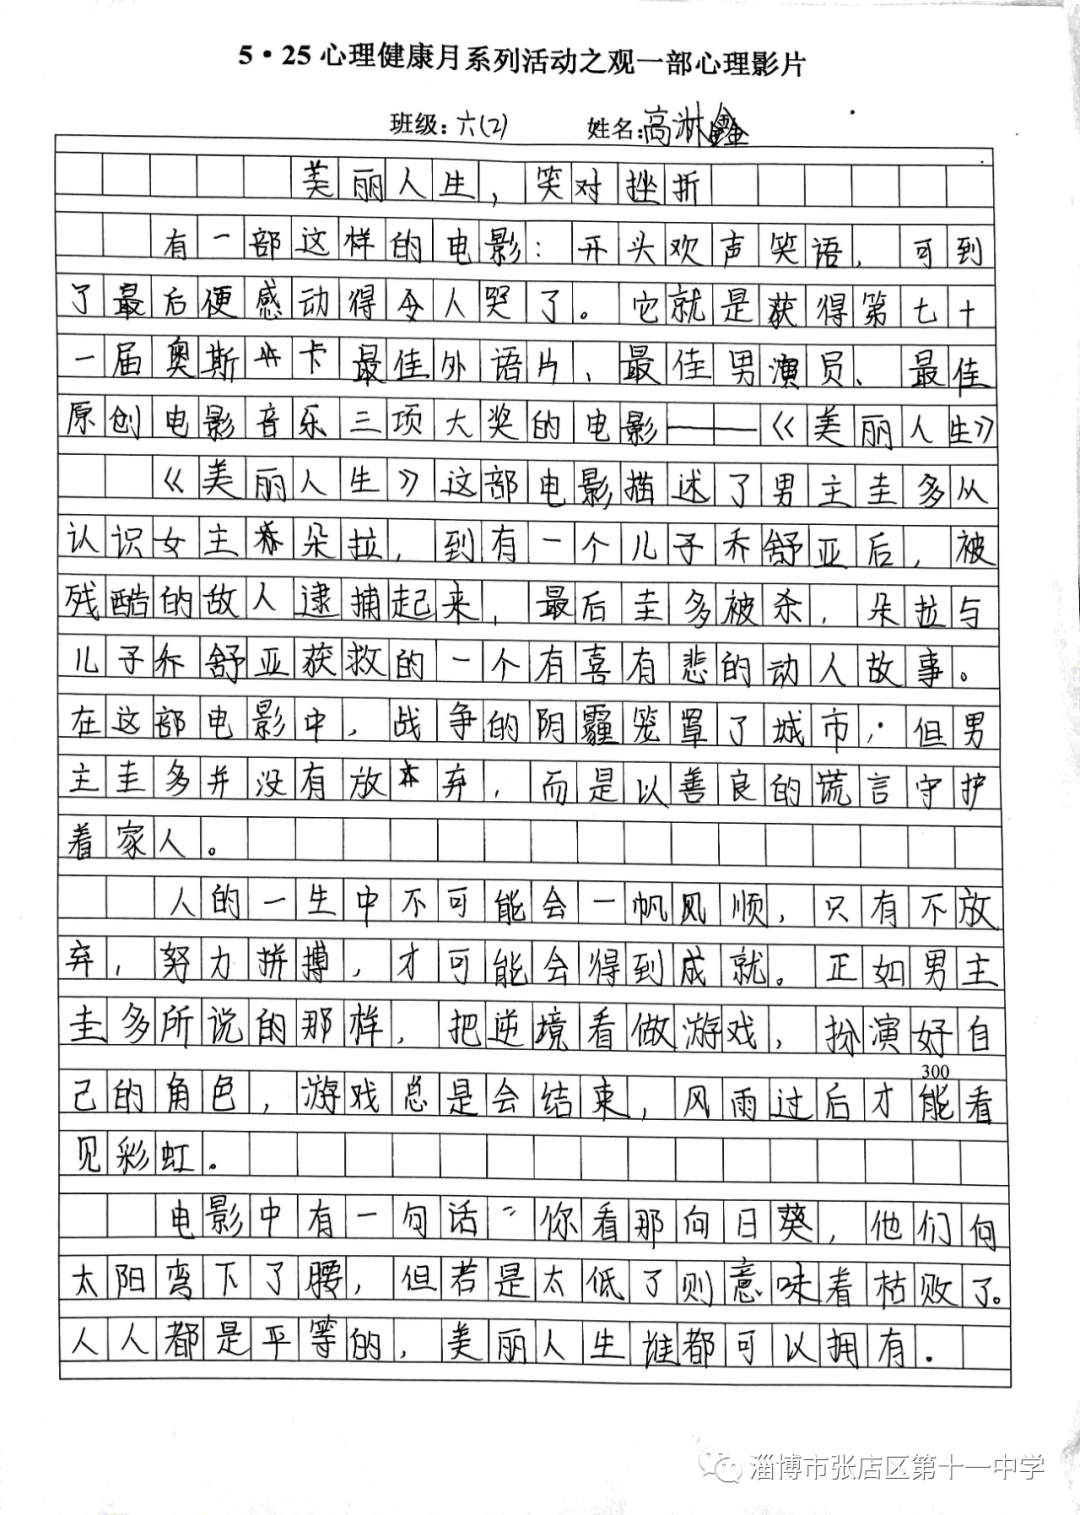 5·25心理健康月系列活动之观一部心理影片
班级:六(2) 姓名:高淋鑫
美丽人生，笑对挫折
有一部这样的电影：开头欢声笑语，可到
了最后便感动得令人哭了。它就是获得第七十
一届奥斯卡最佳外语片、最佳男演员、最佳
原创电影音乐三项大奖的电影——《美丽人生》
《美丽人生》这部电影描述了男主圭多从
认识女主朵拉，到有一个儿子乔舒亚后，被
残酷的敌人逮捕起来，最后圭多被杀，朵拉与
儿子乔舒亚获救的一个有喜有悲的动人故事。
在这部电影中，战争的阴霾笼罩了城市，但男
主圭多并没有放弃，而是以善良的谎言守护
着家人。
人的一生中不可能会一帆风顺，只有不放
弃，努力拼搏，才可能会得到成就。正如男主
圭多所说的那样，把逆境看做游戏，扮演好自
己的角色，游戏总是会结束，风雨过后才能看
300
见彩虹。
电影中有一句话“你看那向日葵，他们向
太阳弯下了腰，但若是太低了则意味着枯败了。
人人都是平等的，美丽人生谁都可以拥有.
淄博市张店区第十一中学